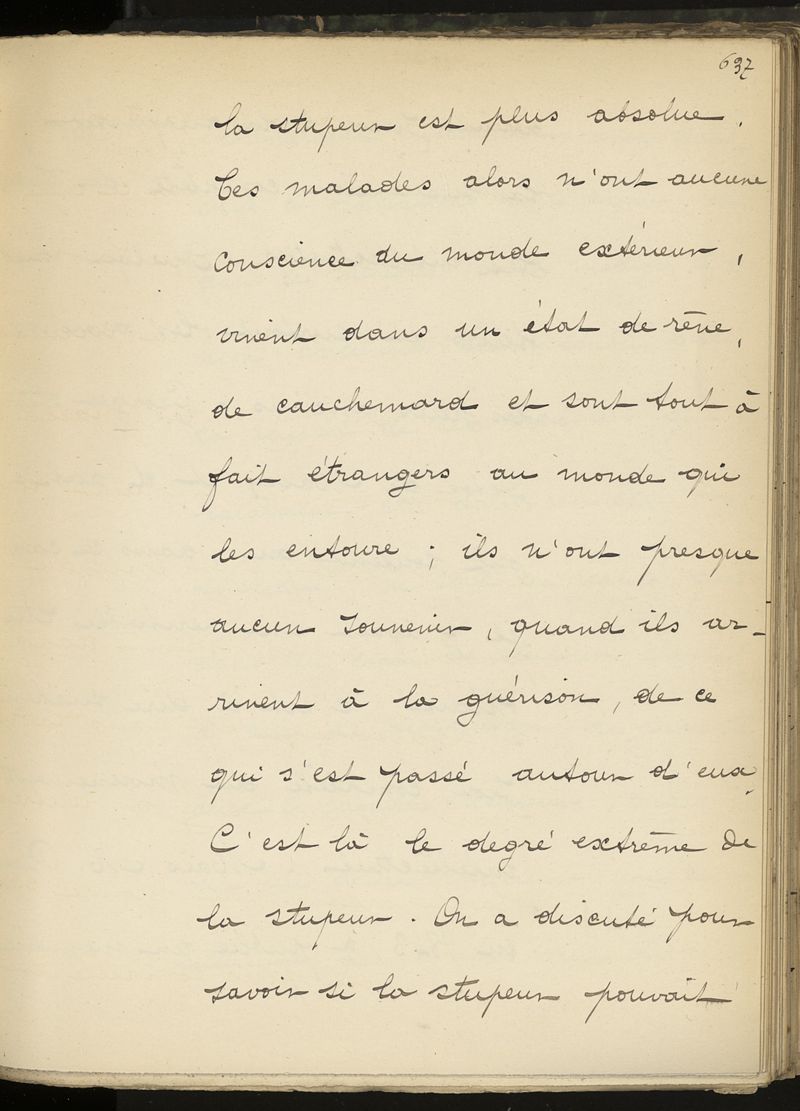 637
la stupeur est plus absolue.
Ces malades alors n'ont aucune
conscience du monde extérieur,
vivent dans un état de rêve,
de cauchemard et sont tout à
fait étrangers au monde qui
les entoure ; ils n'ont presque
aucun souvenir, quand ils ar-
rivent à la guérison, de ce
qui s'est passé autour d'eux.
C'est là le degré extrême de
la stupeur. On a discuté pour
savoir si la stupeur pouvait